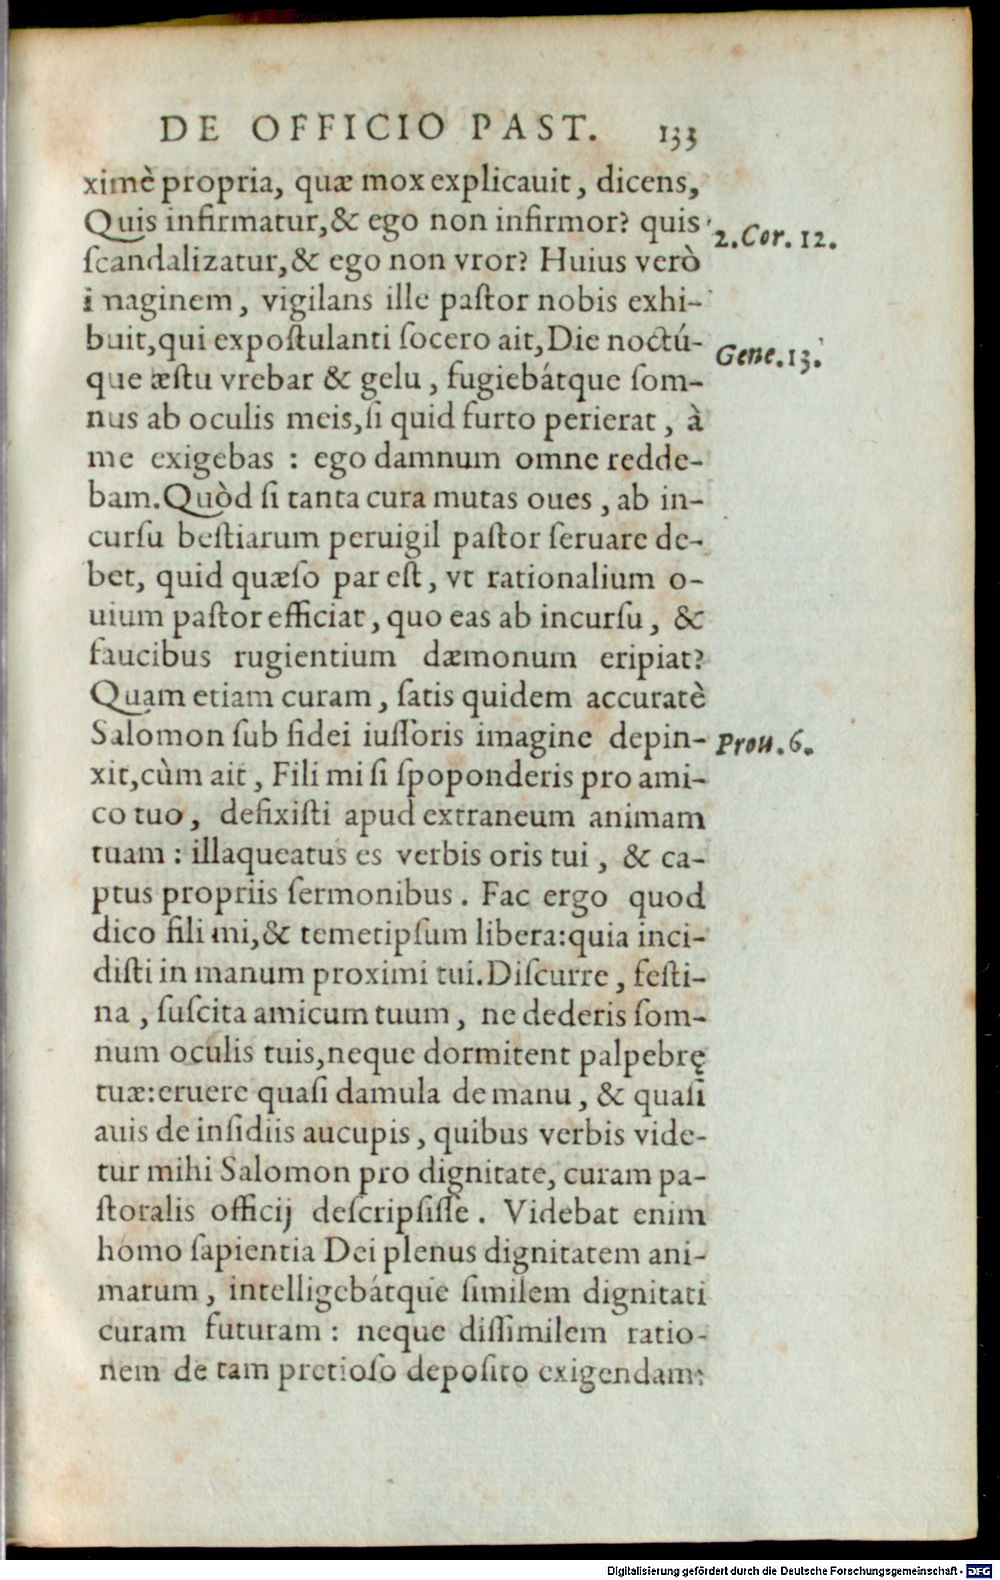 DE OFFICIO PAST. 133
ximè propria, quæ mox explicauit, dicens,
Quis infirmatur, & ego non infirmor? quis
2. Cor. 12.
ſcandalizatur, & ego non vror? Huius verò
imaginem, vigilans ille paſtor nobis exhi-
buit, qui expoſtulanti ſocero ait, Die noctú-
Gene. 13.
que æſtu vrebar & gelu, fugiebátque ſom-
nus ab oculis meis, ſi quid furto perierat, à
me exigebas : ego damnum omne redde-
bam. Quòd ſi tanta cura mutas oues, ab in-
curſu beſtiarum peruigil paſtor ſeruare de-
bet, quid quæſo par eſt, vt rationalium o-
uium paſtor efficiat, quo eas ab incurſu, &
faucibus rugientium dæmonum eripiat?
Quam etiam curam, ſatis quidem accuratè
Salomon ſub fidei iuſſoris imagine depin-
Prou. 6.
xit, cùm ait, Fili mi ſi ſpoponderis pro ami-
co tuo, defixiſti apud extraneum animam
tuam : illaqueatus es verbis oris tui, & ca-
ptus propriis ſermonibus. Fac ergo quod
dico fili mi, & temetipſum libera: quia inci-
diſti in manum proximi tui. Diſcurre, feſti-
na, ſuſcita amicum tuum, ne dederis ſom-
num oculis tuis, neque dormitent palpebrę
tuæ: eruere quaſi damula de manu, & quaſi
auis de inſidiis aucupis, quibus verbis vide-
tur mihi Salomon pro dignitate, curam pa-
ſtoralis officij deſcripſiſſe. Videbat enim
homo ſapientia Dei plenus dignitatem ani-
marum, intelligebátque ſimilem dignitati
curam futuram : neque diſſimilem ratio-
nem de tam pretioſo depoſito exigendam:
Digitalisierung gefördert durch die Deutsche Forschungsgemeinschaft - DFG